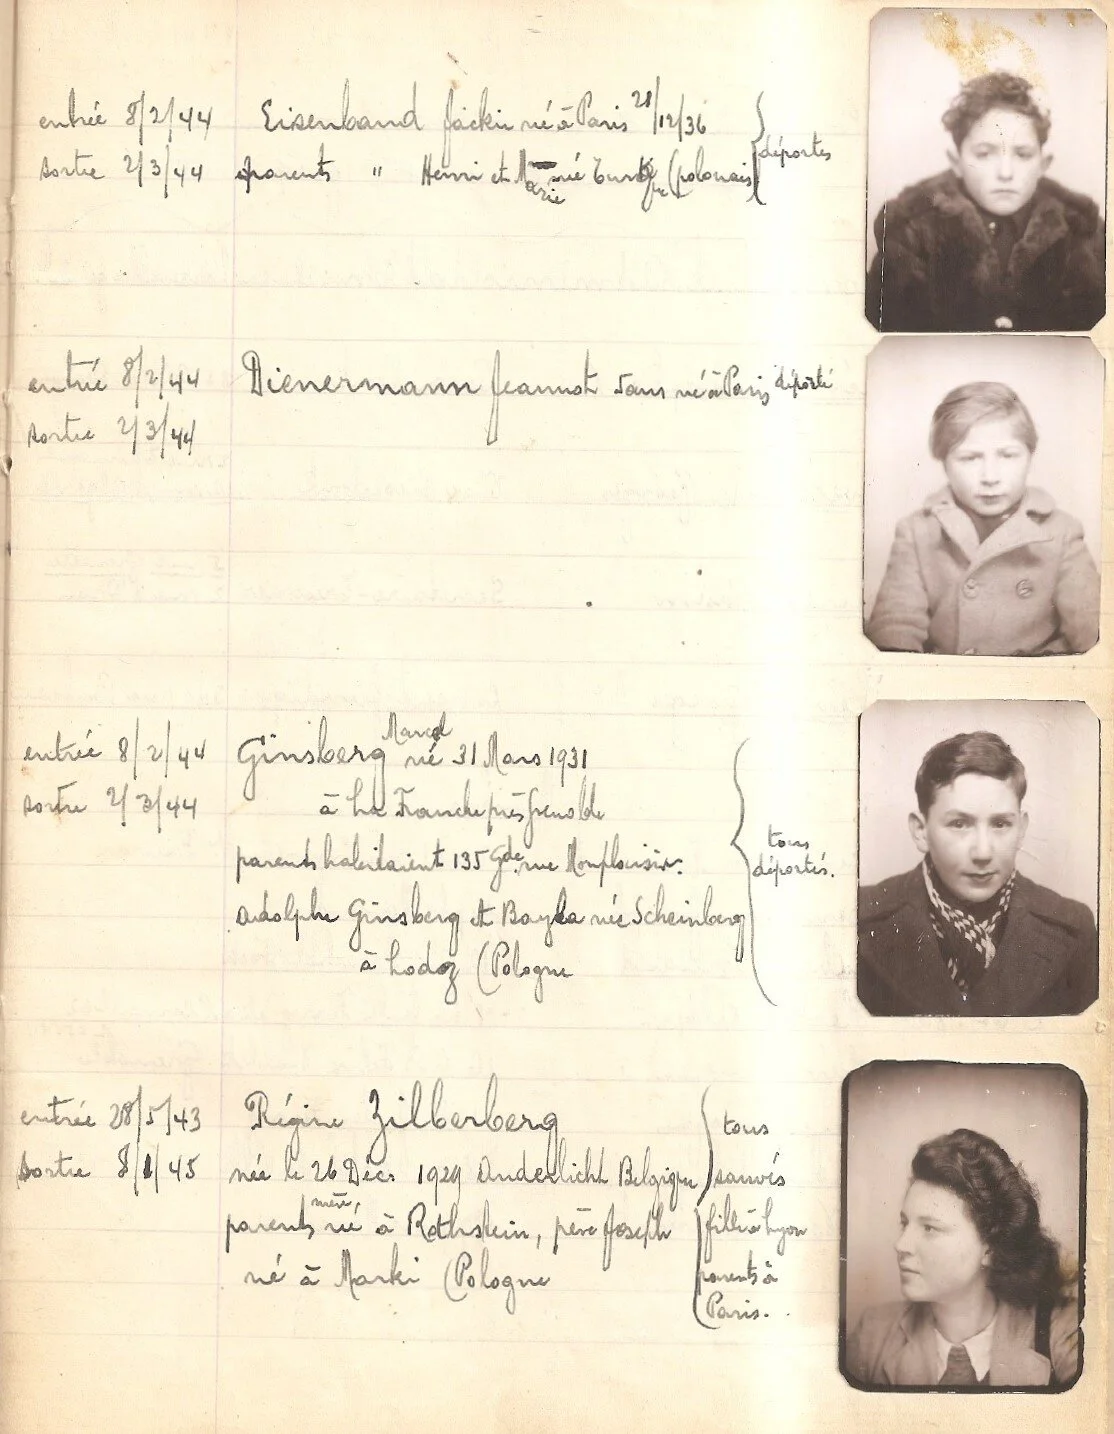 entrée 8/2/44 Eisenband Jackie né à Paris 21/12/36
sortie 2/3/44 parents " Henri et Marie né (polonais)
déportés
entrée 8/2/44 Dienermann Jeannot 5 ans né à Paris déporté
sortie 2/3/44
entrée 8/2/44 Ginsberg Marcel né 31 Mars 1931
sortie 2/3/44 à La Tronche près Grenoble
parents habitaient 135 Gde rue Monplaisir.
Adolphe Ginsberg et Bayla née Scheinberg
à Lodz (Pologne
tous
déportés.
entrée 28/5/43 Régine Zilberberg
sortie 8/1/45 née le 26 Déc. 1929 Anderlicht Belgique
parents mère, né à Rothstein, père Joseph
né à Marki (Pologne
tous
sauvés
fille à Lyon
parents à
Paris.